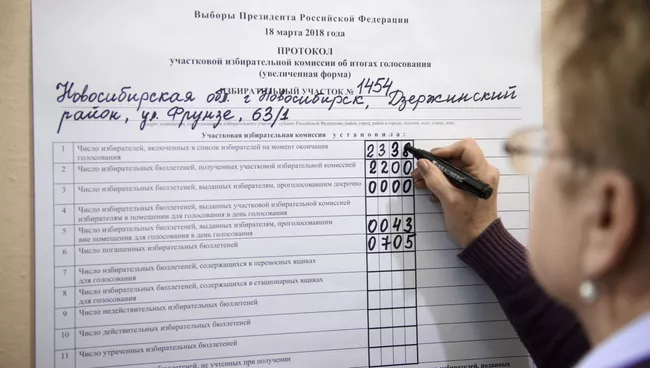 Выборы Президента Российской Федерации
18 марта 2018 года
ПРОТОКОЛ
участковой избирательной комиссии об итогах голосования
(увеличенная форма)
ИЗБИРАТЕЛЬНЫЙ УЧАСТОК № 1454
Новосибирская обл. г Новосибирск, Дзержинский
район, ул. Фрунзе, 63/1
Участковая избирательная комиссия установила:
1 Число избирателей, включенных в список избирателей на момент окончания
голосования 233
2 Число избирательных бюллетеней, полученных участковой избирательной комиссией 2200
3 Число избирательных бюллетеней, выданных избирателям, проголосовавшим досрочно 0000
4 Число избирательных бюллетеней, выданных участковой избирательной комиссией
избирателям в помещении для голосования в день голосования
5 Число избирательных бюллетеней, выданных избирателям, проголосовавшим
вне помещения для голосования в день голосования 0043
6 Число погашенных избирательных бюллетеней 0705
7 Число избирательных бюллетеней, содержащихся в переносных ящиках
для голосования
8 Число избирательных бюллетеней, содержащихся в стационарных ящиках
для голосования
9 Число недействительных избирательных бюллетеней
10 Число действительных избирательных бюллетеней
11 Число утраченных избирательных бюллетеней
не учтенных при получении